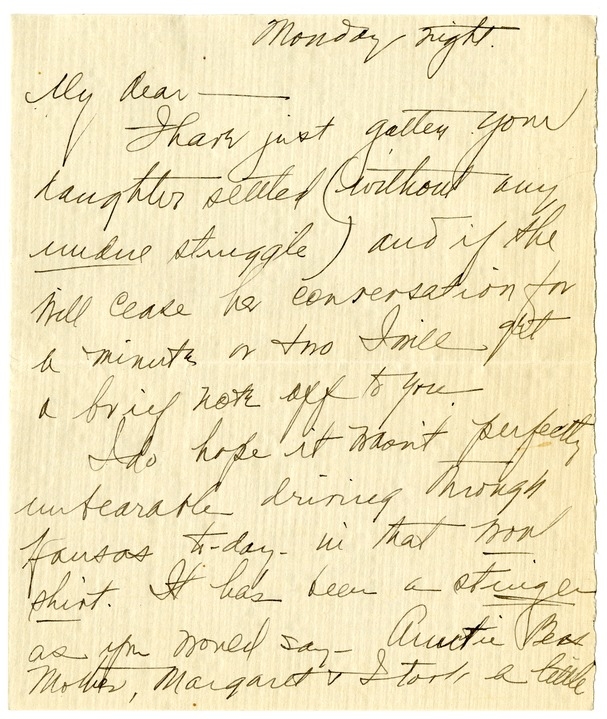 Monday night.
My dear——
I have just gotten your
daughter settled (without any
undue struggle) and if she
will cease her conversation for
a minute or two I will get
a brief note off to you.
I do hope it wasn't perfectly
unbearable driving through
Kansas to-day - in that wool
shirt. It has been a stinger
as you would say - Auntie Bess
Mother, Margaret & I took a little